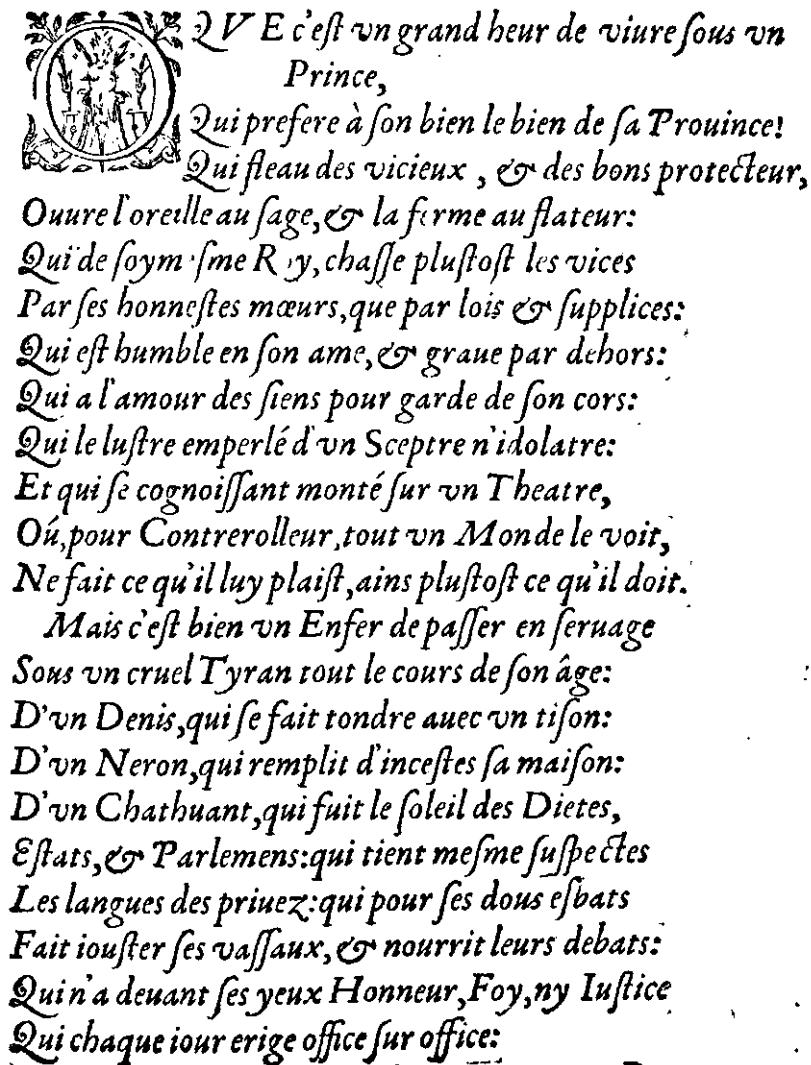 O QVE c'eſt vn grand heur de viure ſous vn
Prince,
Qui prefere à ſon bien le bien de ſa Prouince!
Qui fleau des vicieux, & des bons protecteur,
Ouure l'oreille au ſage, & la ferme au flateur:
Qui de ſoymeſme Roy, chaſſe pluſtoſt les vices
Par ſes honneſtes mœurs, que par lois & ſupplices:
Qui eſt humble en ſon ame, & graue par dehors:
Qui a l'amour des ſiens pour garde de ſon cors:
Qui le luſtre emperlé d'vn Sceptre n'idolatre:
Et qui ſe cognoiſſant monté ſur vn Theatre,
Oú, pour Contrerolleur, tout vn Monde le voit,
Ne fait ce qu'il luy plaiſt, ains pluſtoſt ce qu'il doit.
Mais c'eſt bien vn Enfer de paſſer en ſeruage
Sous vn cruel Tyran tout le cours de ſon âge:
D'vn Denis, qui ſe fait tondre auec vn tiſon:
D'vn Neron, qui remplit d'inceſtes ſa maiſon:
D'vn Chathuant, qui fuit le ſoleil des Dietes,
Eſtats, & Parlemens: qui tient meſme ſuſpectes
Les langues des priuez: qui pour ſes dous eſbats
Fait iouſter ſes vaſſaux, & nourrit leurs debats:
Qui n'a deuant ſes yeux Honneur, Foy, ny Iuſtice
Qui chaque iour erige office ſur office: